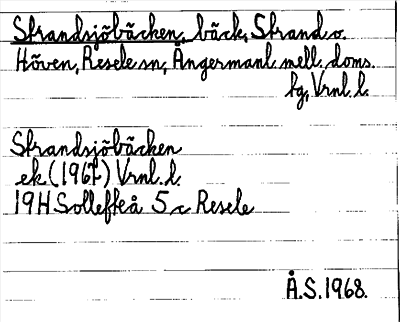 Strandsjöbäcken, bäck, Strand o.
Höven, Resele sn, Ångermanl. mell. doms.
fg, Vrnl. l.
Strandsjöbäcken
ek (1967) Vrnl. l.
19H Sollefteå 5c Resele
Å.S. 1968.